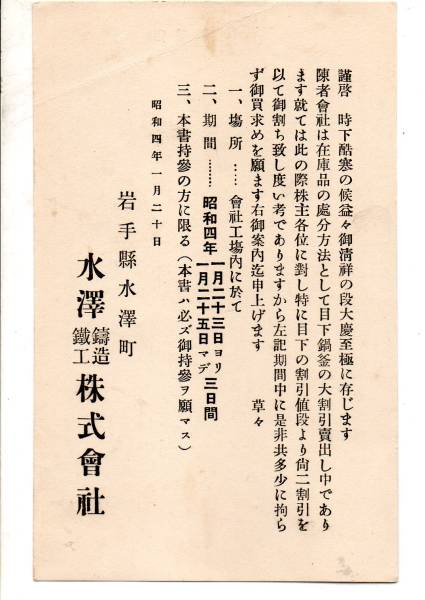 謹啓　時下酷寒の候益々御淸祥の段大慶至極に存じます
陳者會社は在庫品の處分方法として目下鍋釜の大割引賣出し中であり
ます就ては此の際株主各位に對し特に目下の割引値段より尙二割引を
以て御割ち致し度い考でありますから左記期間中に是非共多少に拘ら
ず御買求めを願ます右御案内迄申上げます　草々
一、場所……會社工場內に於て
二、期間……昭和四年一月二十三日ヨリ一月二十五日マデ三日間
三、本書持參の方に限る（本書ハ必ズ御持參ヲ願マス）
昭和四年一月二十日
岩手縣水澤町
水澤鑄造鐵工株式會社